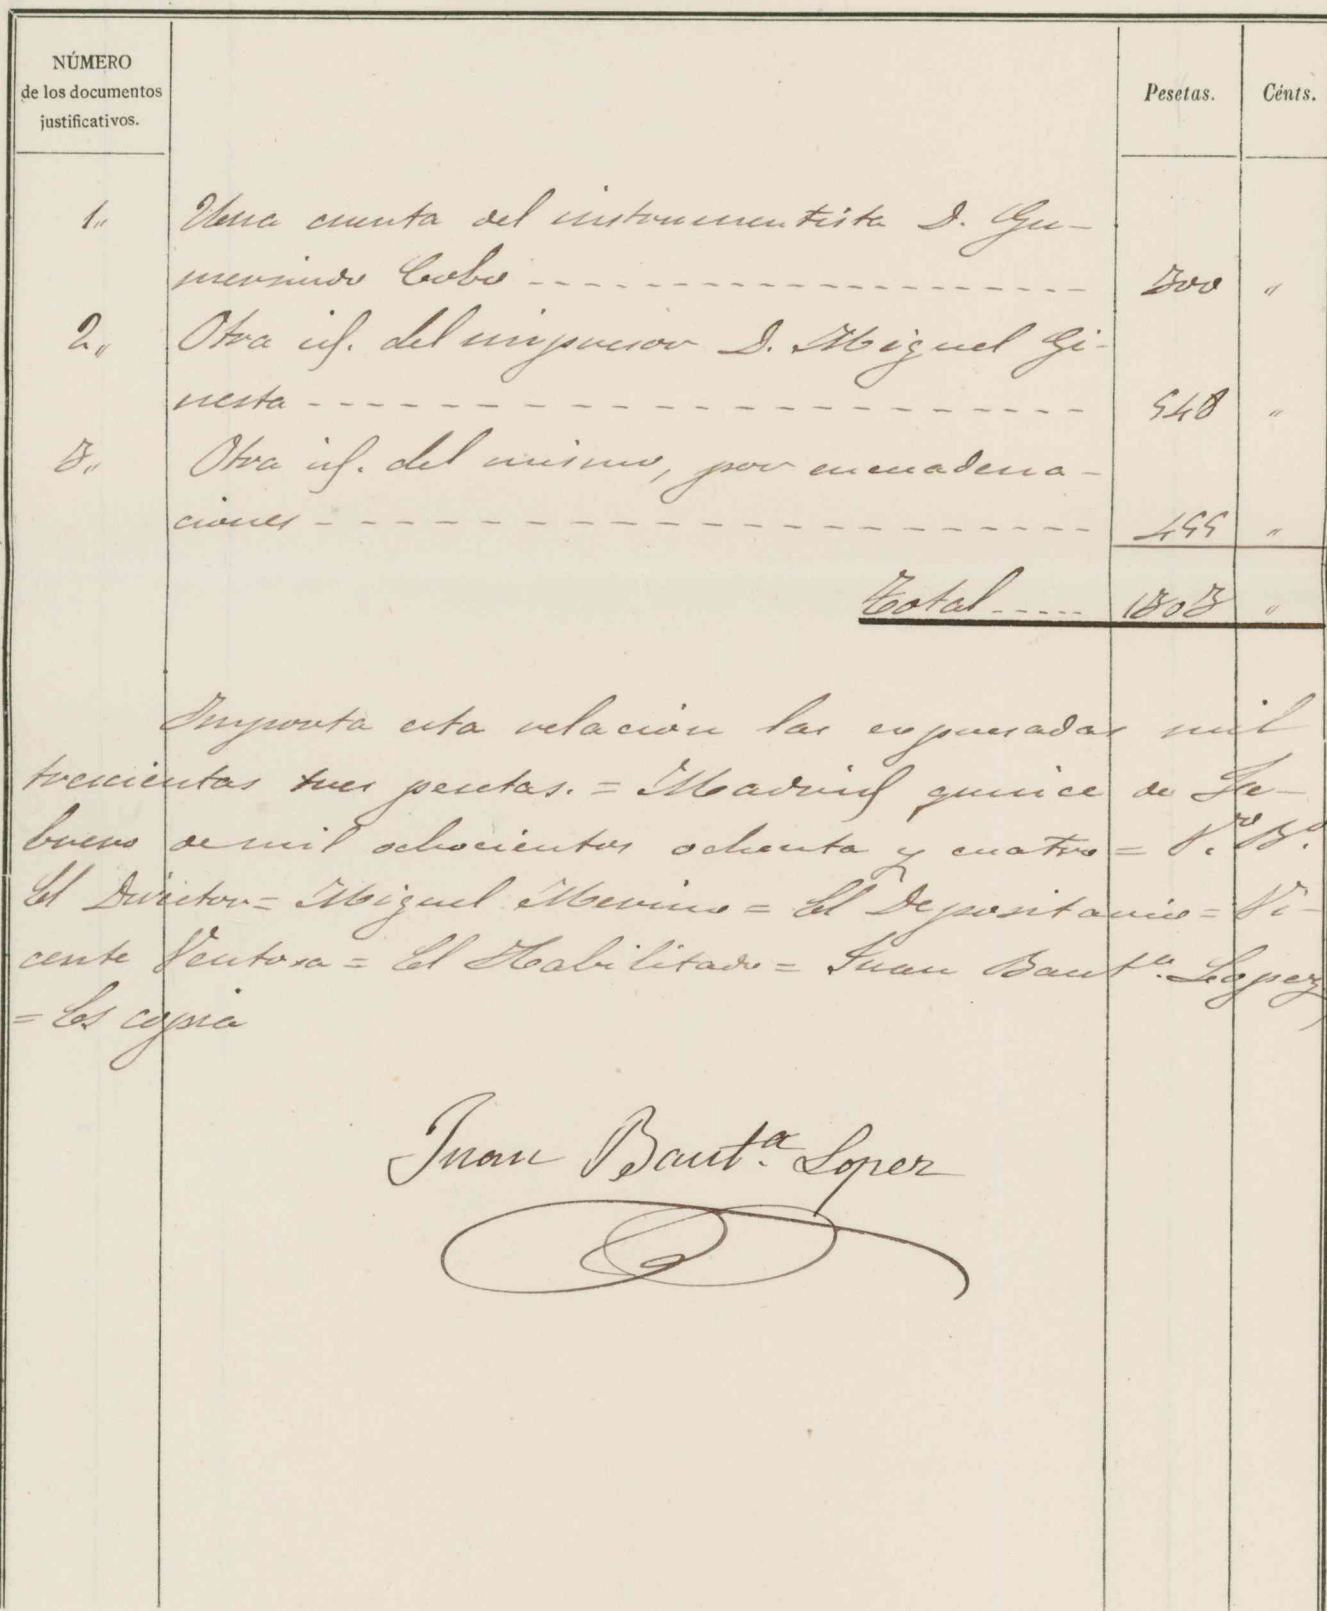 NÚMERO
de los documentos
justificativos.
Pesetas. Cénts.
1„ Una cuenta del instrumentista D. Gu-
mersindo Cobo ------------------- 300 „
2„ Otra id. del impresor D. Miguel Gi-
nesta ------------------------ 548 „
3„ Otra id. del mismo, por encuaderna-
ciones ------------------------ 455 „
Total ----- 1303 „
Importa esta relación las expresadas mil
trescientas tres pesetas. = Madrid quince de Fe-
brero de mil ochocientos ochenta y cuatro = V.º B.º
El Director = Miguel Merino = El Depositario = Vi-
cente Ventosa = El Habilitado = Juan Baut.ª Lopez
= Es copia
Juan Baut.ª Lopez